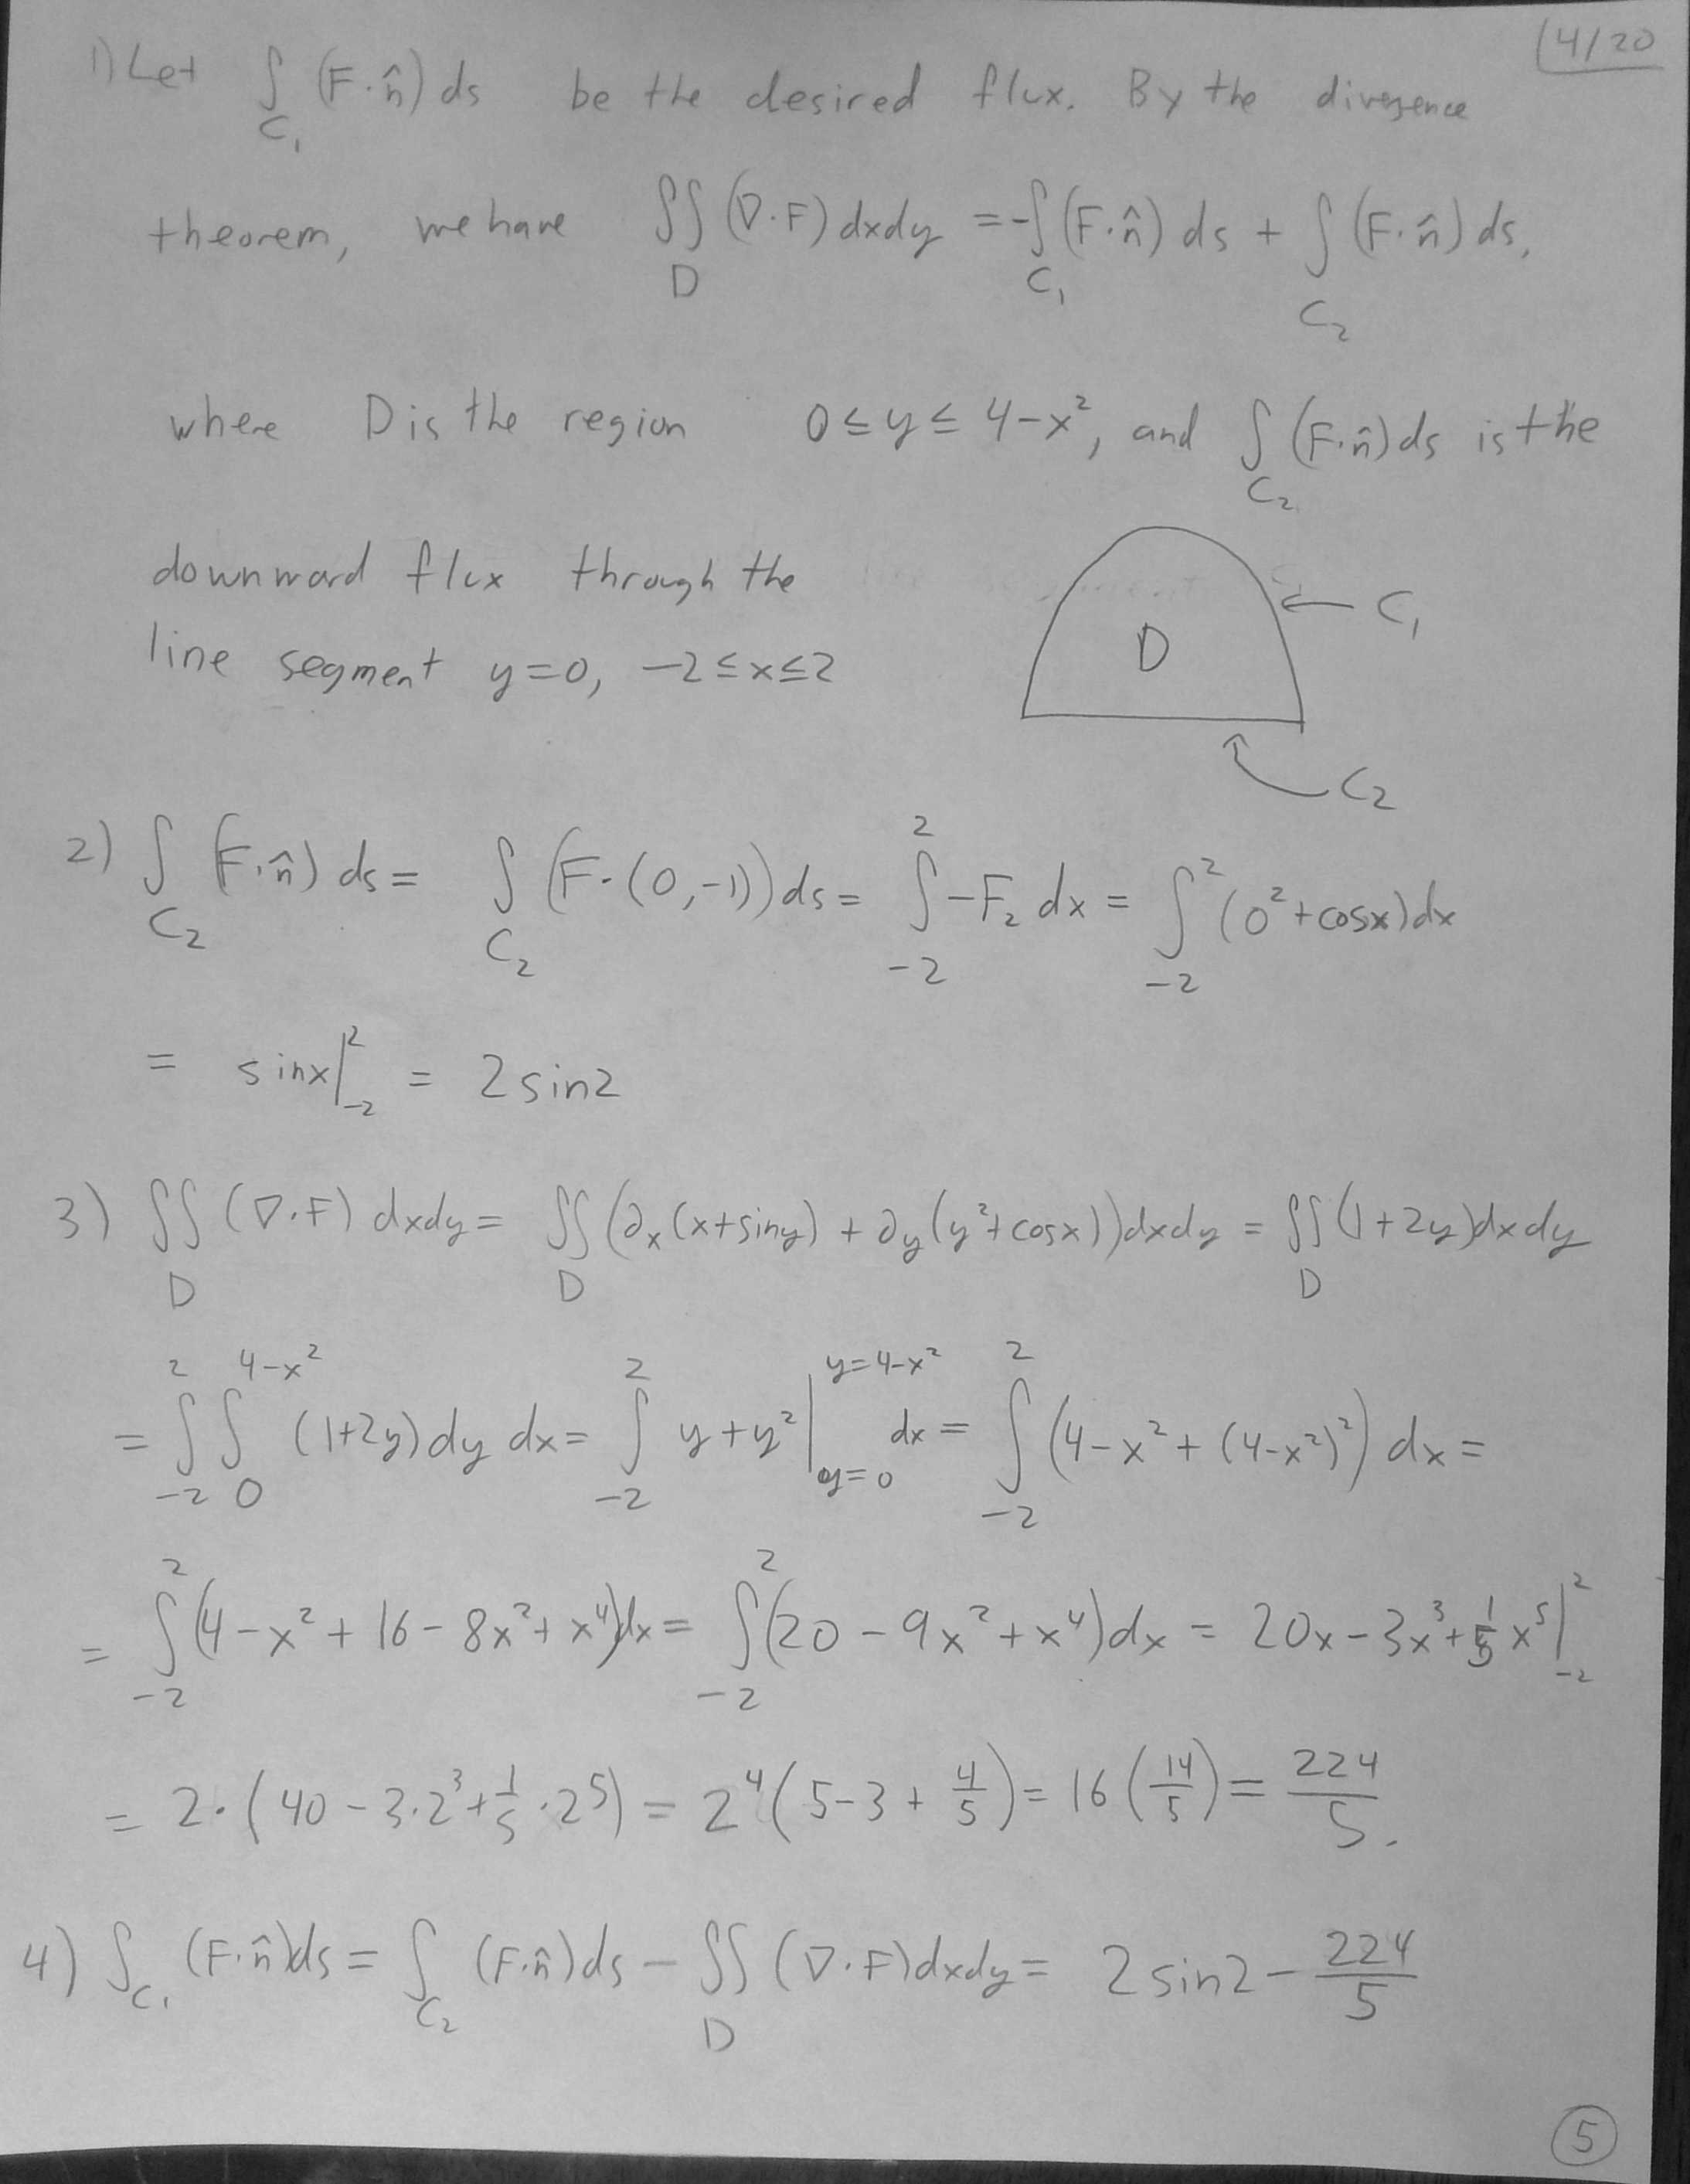 (4/20
1) Let ∫_{C₁} (F·n̂) ds be the desired flux. By the divergence
theorem, we have ∬_D (∇·F) dxdy = -∫_{C₁} (F·n̂) ds + ∫_{C₂} (F·n̂) ds,
where D is the region 0 ≤ y ≤ 4-x², and ∫_{C₂} (F·n̂) ds is the
downward flux through the
line segment y=0, -2≤x≤2
C₁
D
C₂
2) ∫_{C₂} (F·n̂) ds = ∫_{C₂} (F·(0,-1)) ds = ∫_{-2}^{2} -F₂ dx = ∫_{-2}^{2} (0²+cosx) dx
= sinx|_{-2}^{2} = 2sin2
3) ∬_D (∇·F) dxdy = ∬_D (∂ₓ(x+siny) + ∂_y(y²+cosx)) dxdy = ∬_D (1+2y) dxdy
= ∫_{-2}^{2} ∫_{0}^{4-x²} (1+2y) dy dx = ∫_{-2}^{2} y+y²|_{y=0}^{y=4-x²} dx = ∫_{-2}^{2} (4-x²+(4-x²)²) dx =
= ∫_{-2}^{2} (4-x²+16-8x²+x⁴) dx = ∫_{-2}^{2} (20-9x²+x⁴) dx = 20x-3x³+1/5 x⁵|_{-2}^{2}
= 2·(40-3·2³+1/5·2⁵) = 2⁴(5-3+4/5) = 16(14/5) = 224/5.
4) ∫_{C₁} (F·n̂) ds = ∫_{C₂} (F·n̂) ds - ∬_D (∇·F) dxdy = 2sin2 - 224/5
5